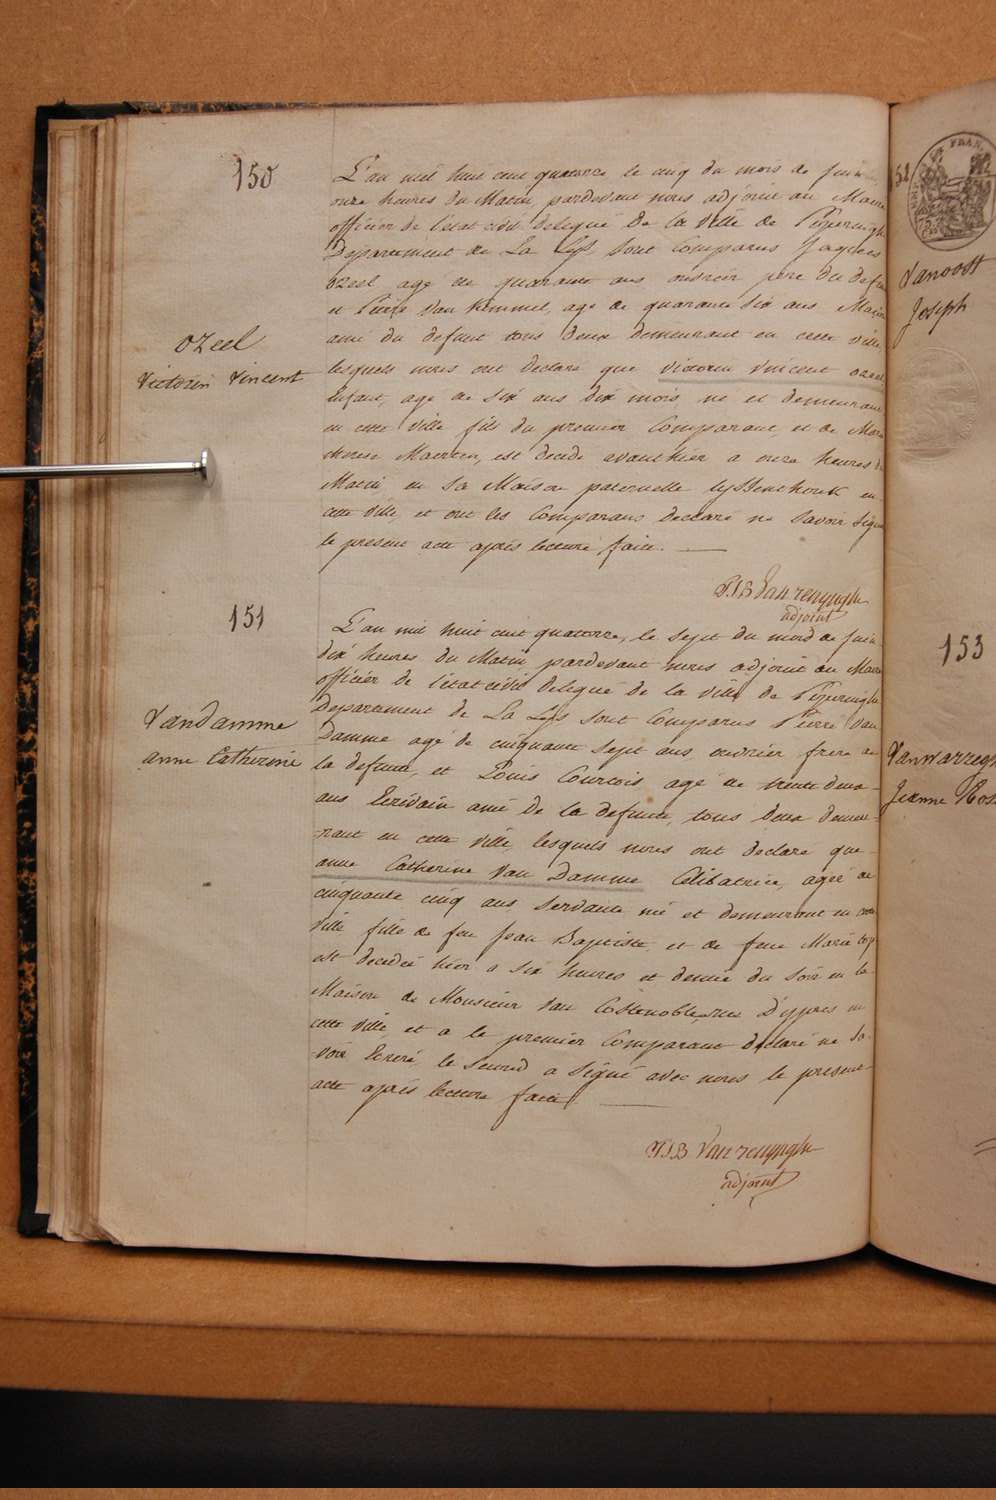 150
L'an mil huit cent quatorze le cinq du mois de Juin
onze heures du Matin, pardevant nous adjoint au Maire
officier de l'état civil delegué de la ville de Poperinghe
Departement de La Lys, sont Comparus Jacques
ozeel agé de quarante ans ouvrier pere du defunt
et Pierre Van Kemmel, agé de quarante six ans Maçon
ami du defunt tous deux demeurant en cette ville
lesquels nous ont declare que victorin vincent ozeel
Enfant, agé de six ans dix mois, né et demeurant
en cette ville fils du premier Comparant, et de Marie
therese Maerten, est decédé avanthier a onze heures du
Matin en sa Maison paternelle lyssenthoek en
cette ville, et ont les Comparans declaré ne savoir signer
le present acte après lecture faite.
ozeel
Victorin Vincent
P.J.B Van renynghe
adjoint
151
L'an mil huit cent quatorze, le sept du mois de Juin
dix heures du Matin, pardevant nous adjoint au Maire
officier de l'état civil delegué de la ville de Poperinghe
Departement de La Lys sont Comparus Pierre Van
Damme agé de cinquante sept ans, ouvrier frere de
la defunte, et Louis Courtois agé de trente deux
ans Ecrivain ami de la defunte, tous deux demeu-
-rant en cette ville, lesquels nous ont declaré que
anne Catherine Van Damme Célibatrice, agée de
cinquante cinq ans servante née et demeurant en cette
ville fille de feu Jean Baptiste, et de feue Marie top
est decédée hier a six heures et demie du soir en la
Maison de Monsieur Van Costenoble, rue D'ypres en
cette ville, et a le premier Comparant declaré ne sa-
-voir Ecrire, le second a signé avec nous le present
acte après lecture faite.
Vandamme
anne Catherine
P.J.B Van renynghe
adjoint
52
Vanoost
Joseph
153
Vanwarregh
Jeanne Ros